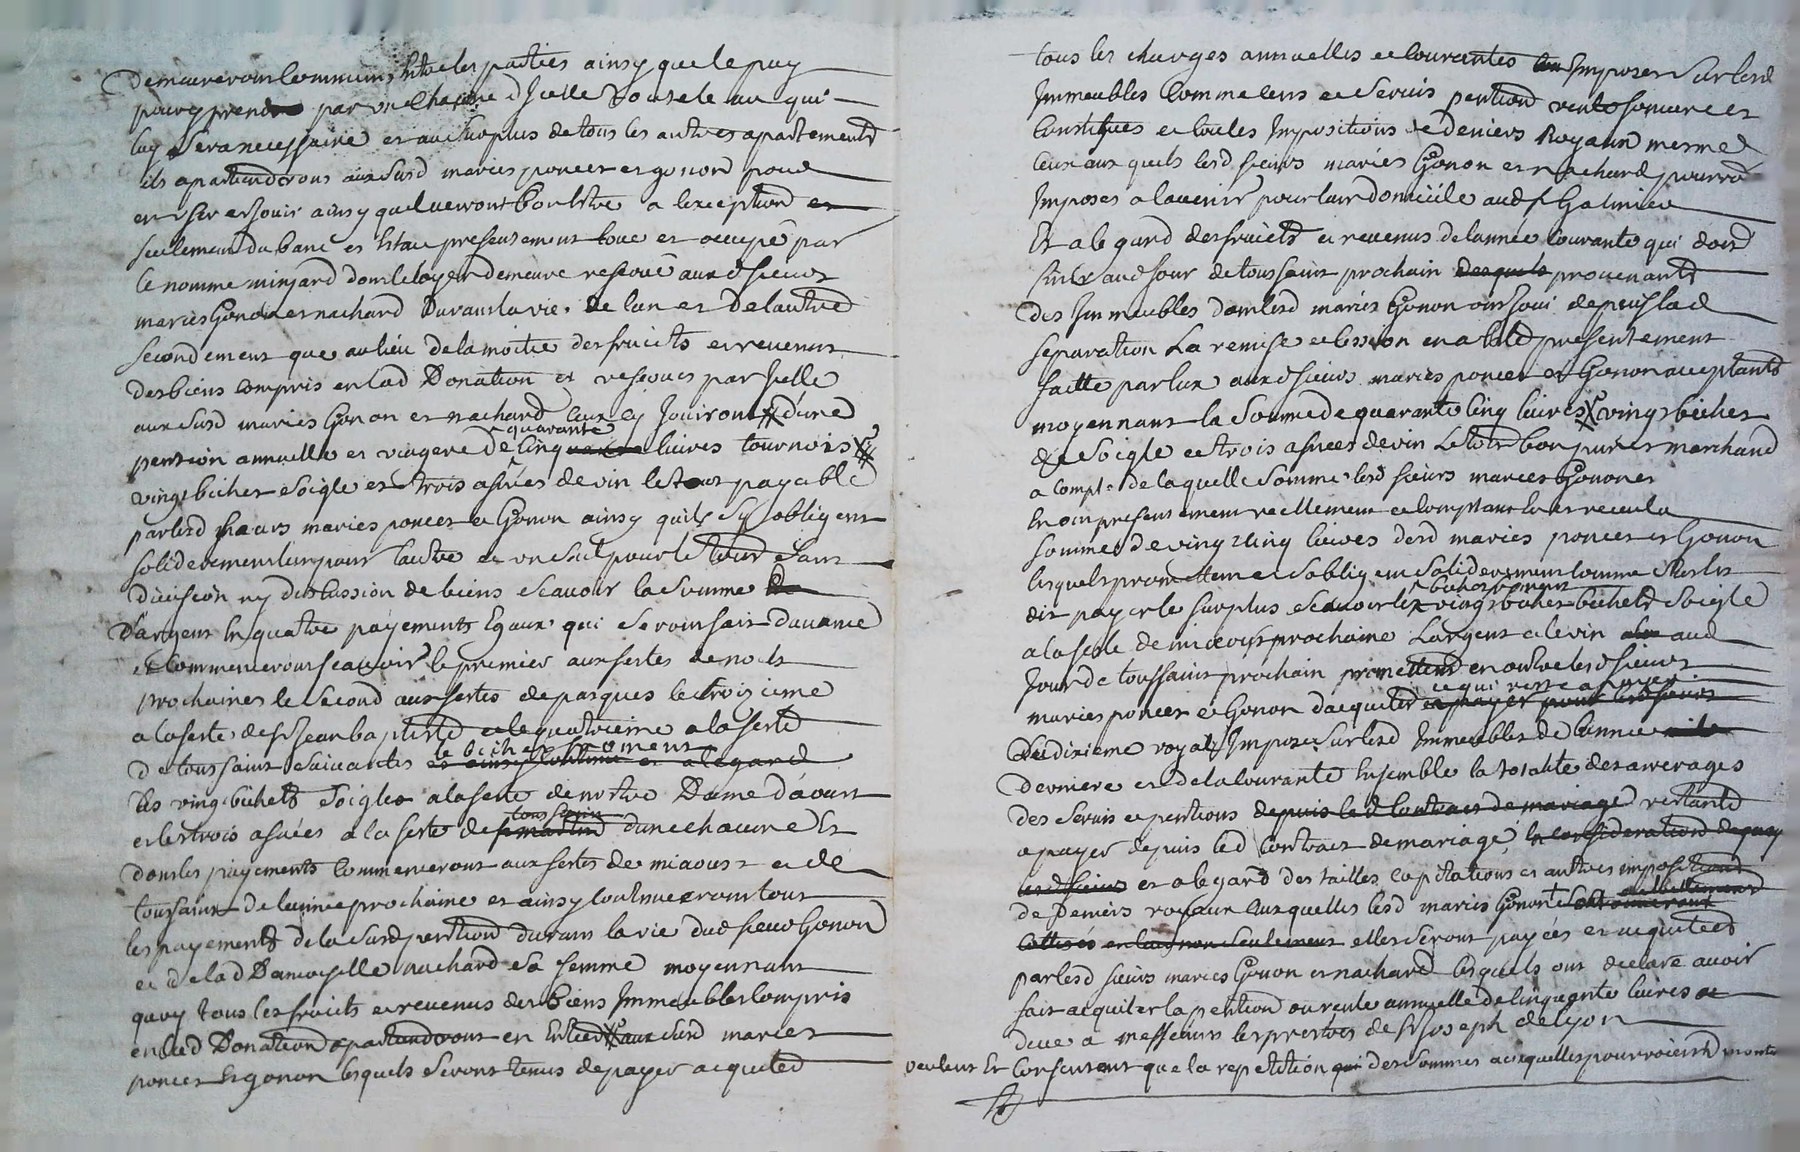 Demeureront Communs Entre les parties ainsy que le puy
pour y prendre par une Chacune d'Icelle Portele au qui
luy sera necessaire et au surplus de tous les autres apartements
ils apartiendront aux susd mariés poncet et gonon pour
en user et Jouir ainsy quel verront bon Estre a lexception et
seulement du banc et Estau presentement loué et occupé par
le nomme minjard dont le loyer demeure reservé auxd sieurs
mariés Gonon et nachard Durant la vie. de lun et De lautre
secondement que au lieu de la moitie des fruits et revenus
des biens compris en lad Donation et reservés par Icelle
aux susd mariés Gonon et nachard Ceux cy Jouiront d'une
pension annuelle et viagere de quarante Cinq livres tournois
vingt bichet soigle et trois asnées de vin le tout payable
par lesd sieurs mariés poncet et Gonon ainsy quils sy obligent
solidairement lun pour lautre et un seul pour le tout sans
division ny discussion de biens scavoir la somme de
D'argent En quatre payements Egaux qui seront fait d'avance
et Commenceront scavoir le premier aux festes de noels
prochaines le second aux festes de pasques le troizieme
a la feste de st Jean baptiste et le quatrieme a la feste
de toussaint suivantes le bichet froment et ainsy continue et a legard
les vingt bichets soigle a la feste de nostre Dame d'aoust
et les trois asnées a la feste de st martin toussaint d'une chacune Et
dont les payements Commenceront aux festes de miaoust et de
toussaint de lannée prochaine et ainsy Continueront tous
les payements de la susd pention durant la vie dud sieur Gonon
et de lad Damoiselle nachard sa femme moyennant
quoy tous les fruits et revenus des biens Immeubles Compris
en lad Donation apartiendront en Entier aux susd mariés
poncet Et gonon lesquels seront tenus de payer acquiter
tous les charges annuelles et Courantes Imposer sur lesd
Immeubles Comme cens et servis pention rente fonciere et
Constituées et toutes Impositions de Deniers Royaux mesme
Ceux aux quels lesd sieurs mariés Gonon et nachard pourront
Imposes a lavenir pour leur domicile aud st Galmier
Et a legard des fruicts et revenus de lannée Courante qui doit
finir aud Jour de toussaint prochain desquels provenants
des Immeubles dont lesd mariés Gonon ont Joui depuis lad
separation La remise et cession en a Esté presentement
faitte par Eux auxd sieurs mariés poncet et Gonon acceptants
moyennant la somme de quarante Cinq livres vingt bichet
de soigle et trois asnées de vin Le tout bon pur et marchand
a compte de laquelle somme lesd sieurs mariés Gonon et
En ont presentement reellement et Comptant Eu et receu la
somme de vingt Cinq livres desd mariés poncet et Gonon
lesquels promettent et sobligent solidairement Comme Ils Est
dit payer le surplus scavoir les bichet froment vingt bichets soigle
a la feste de miaoust prochaine Largent et le vin aud
Jour de toussaint prochain promettent en outre lesd sieurs
mariés poncet et Gonon d'acquiter ce qui reste a payer et payer pour lesd sieurs
Du dixieme royal Imposé sur lesd Immeubles de lannée
Derniere et de la Courante Ensemble la totalite des arrerages
des servis et pentions depuis led Contract de mariage restants
a payer depuis led Contract de mariage En consideration de quoy
lesd sieurs et a legard des tailles capitations et autres impositions
de Deniers royaux auxquelles lesd mariés Gonon
Cottisés en lad non seulement elles seront payées et acquitées
par lesd sieurs mariés Gonon et nachard lesquels ont declaré avoir
fait acquiter la pention ou rente annuelle de Cinquante livres
deue a messieurs les prestres de st Joseph de Lyon
veulent Et Consentent que la repetition des sommes auxquelles pourroient monter